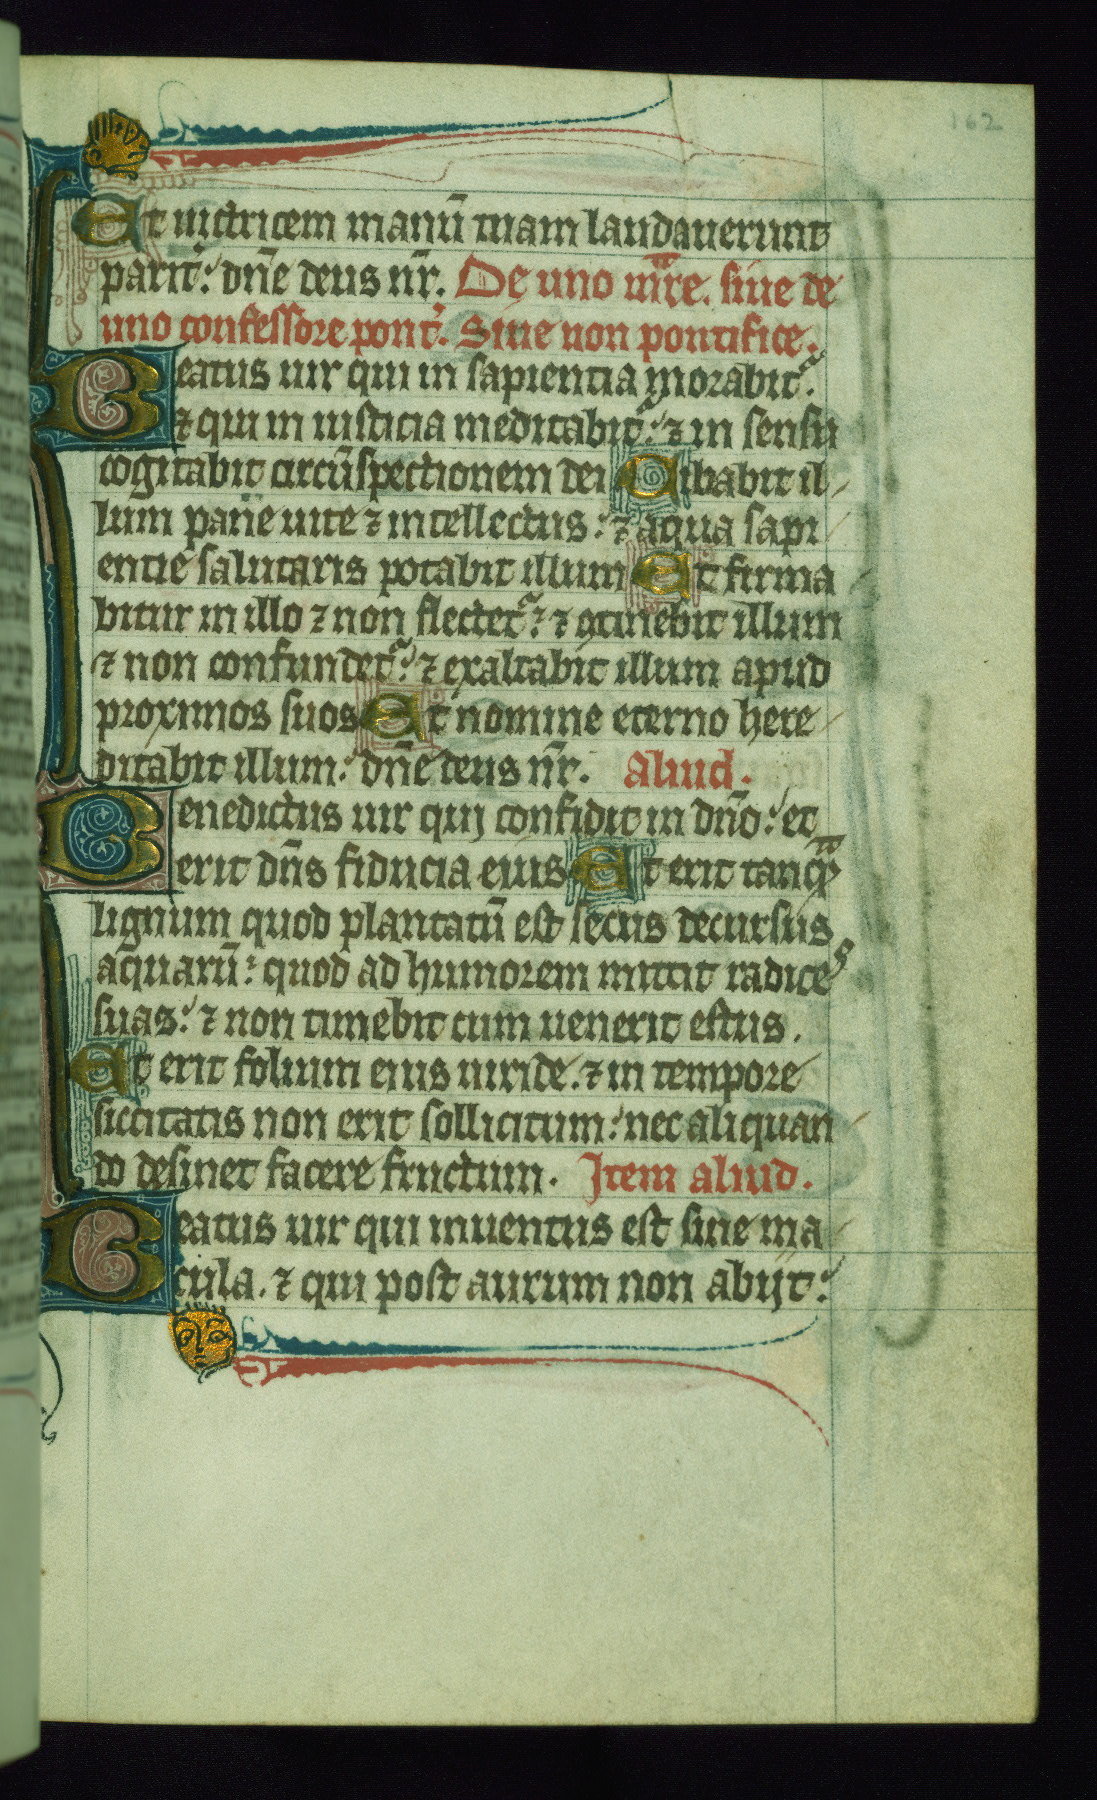 162
Et uictricem manū tuam laudauerunt
parit᷑: dn̄e deus nr̄. De uno mr̄e. siue de
uno confessore pont᷑. Siue non pontifice.
Beatus uir qui in sapientia morabit᷑:
⁊ qui in iusticia meditabit᷑: ⁊ in sensu
cogitabit circūspectionem dei Cibabit il-
lum pane uite ⁊ intellectus: ⁊ aqua sapi-
entie salutaris potabit illum Et firma-
bitur in illo ⁊ non flectet᷑: ⁊ ꝯtinebit illum
⁊ non confundet᷑: ⁊ exaltabit illum apud
proximos suos Et nomine eterno here-
ditabit illum: dn̄e deus nr̄. Aliud.
Benedictus uir qui confidit in dn̄o: et
erit dn̄s fiducia eius Et erit tanqᷓ
lignum quod plantatū est secus decursus
aquarū: quod ad humorem mittit radices
suas: ⁊ non timebit cum uenerit estus.
Et erit folium eius uiride. ⁊ in tempore
siccitatis non erit sollicitum: nec aliquan-
do desinet facere fructum. Item aliud.
Beatus uir qui inuentus est sine ma-
cula. ⁊ qui post aurum non abijt: